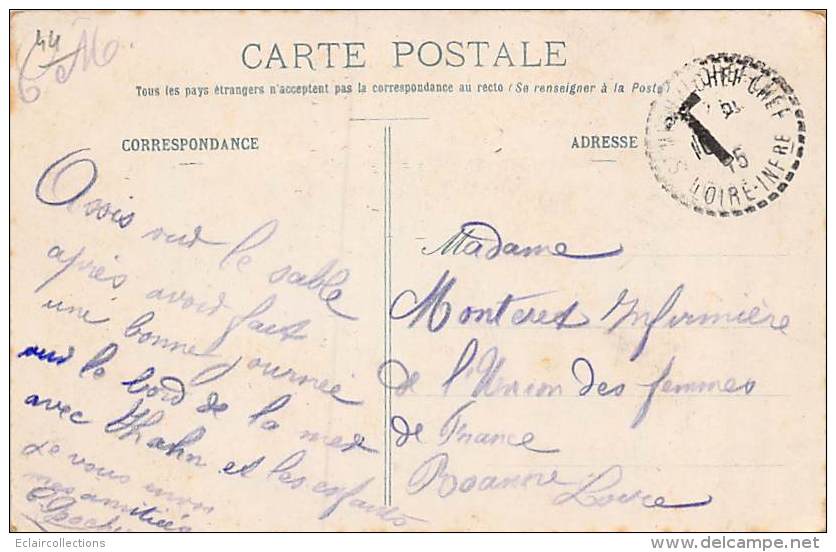 44
CM.
CARTE POSTALE
Tous les pays étrangers n'acceptent pas la correspondance au recto (Se renseigner à la Poste)
CORRESPONDANCE
ADRESSE
CHEF-CHEF
15
LOIRE-INFRE
Assis sur le sable
après avoir fait
une bonne journée
sur le bord de la mer
avec Hahn et les enfants
Je vous envoi
mes amitiés
Madame
Monteret Infirmière
de l'Union des femmes
de France
Roanne
Loire
Eclaircollections
delcampe.net